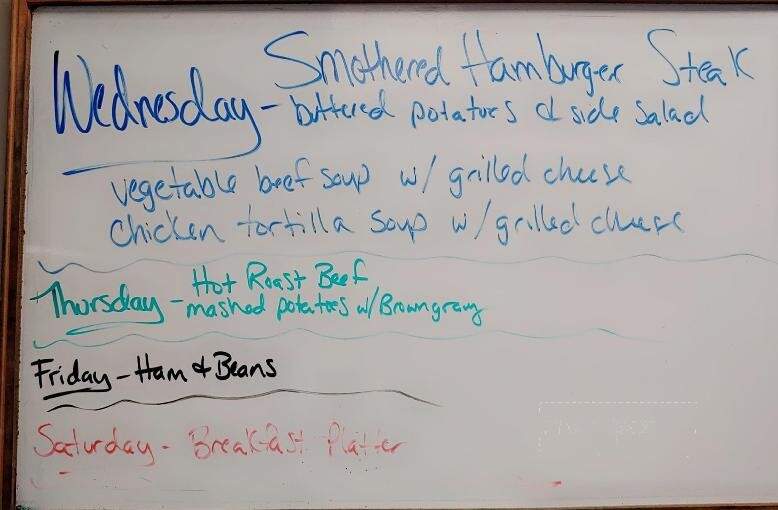 Smothered Hamburger Steak
Wednesday - buttered potatoes & side salad
vegetable beef soup w/ grilled cheese
chicken tortilla soup w/ grilled cheese
Hot Roast Beef
Thursday - mashed potatoes w/ Brown gravy
Friday - Ham & Beans
Saturday - Breakfast Platter